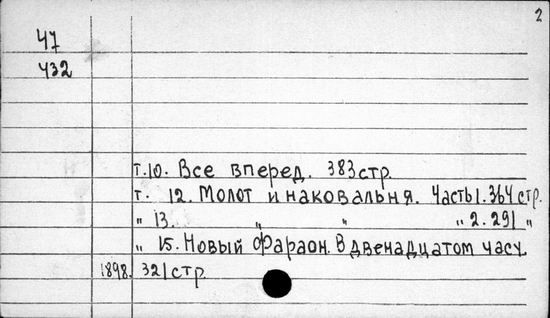 2
47
432
т.10. Все вперед. 383 стр.
т. 12. Молот и наковальня. Часть 1. 364 стр.
" 13. " " " 2. 291 "
" 15. Новый Фараон. В двенадцатом часу.
1898. 321 стр.